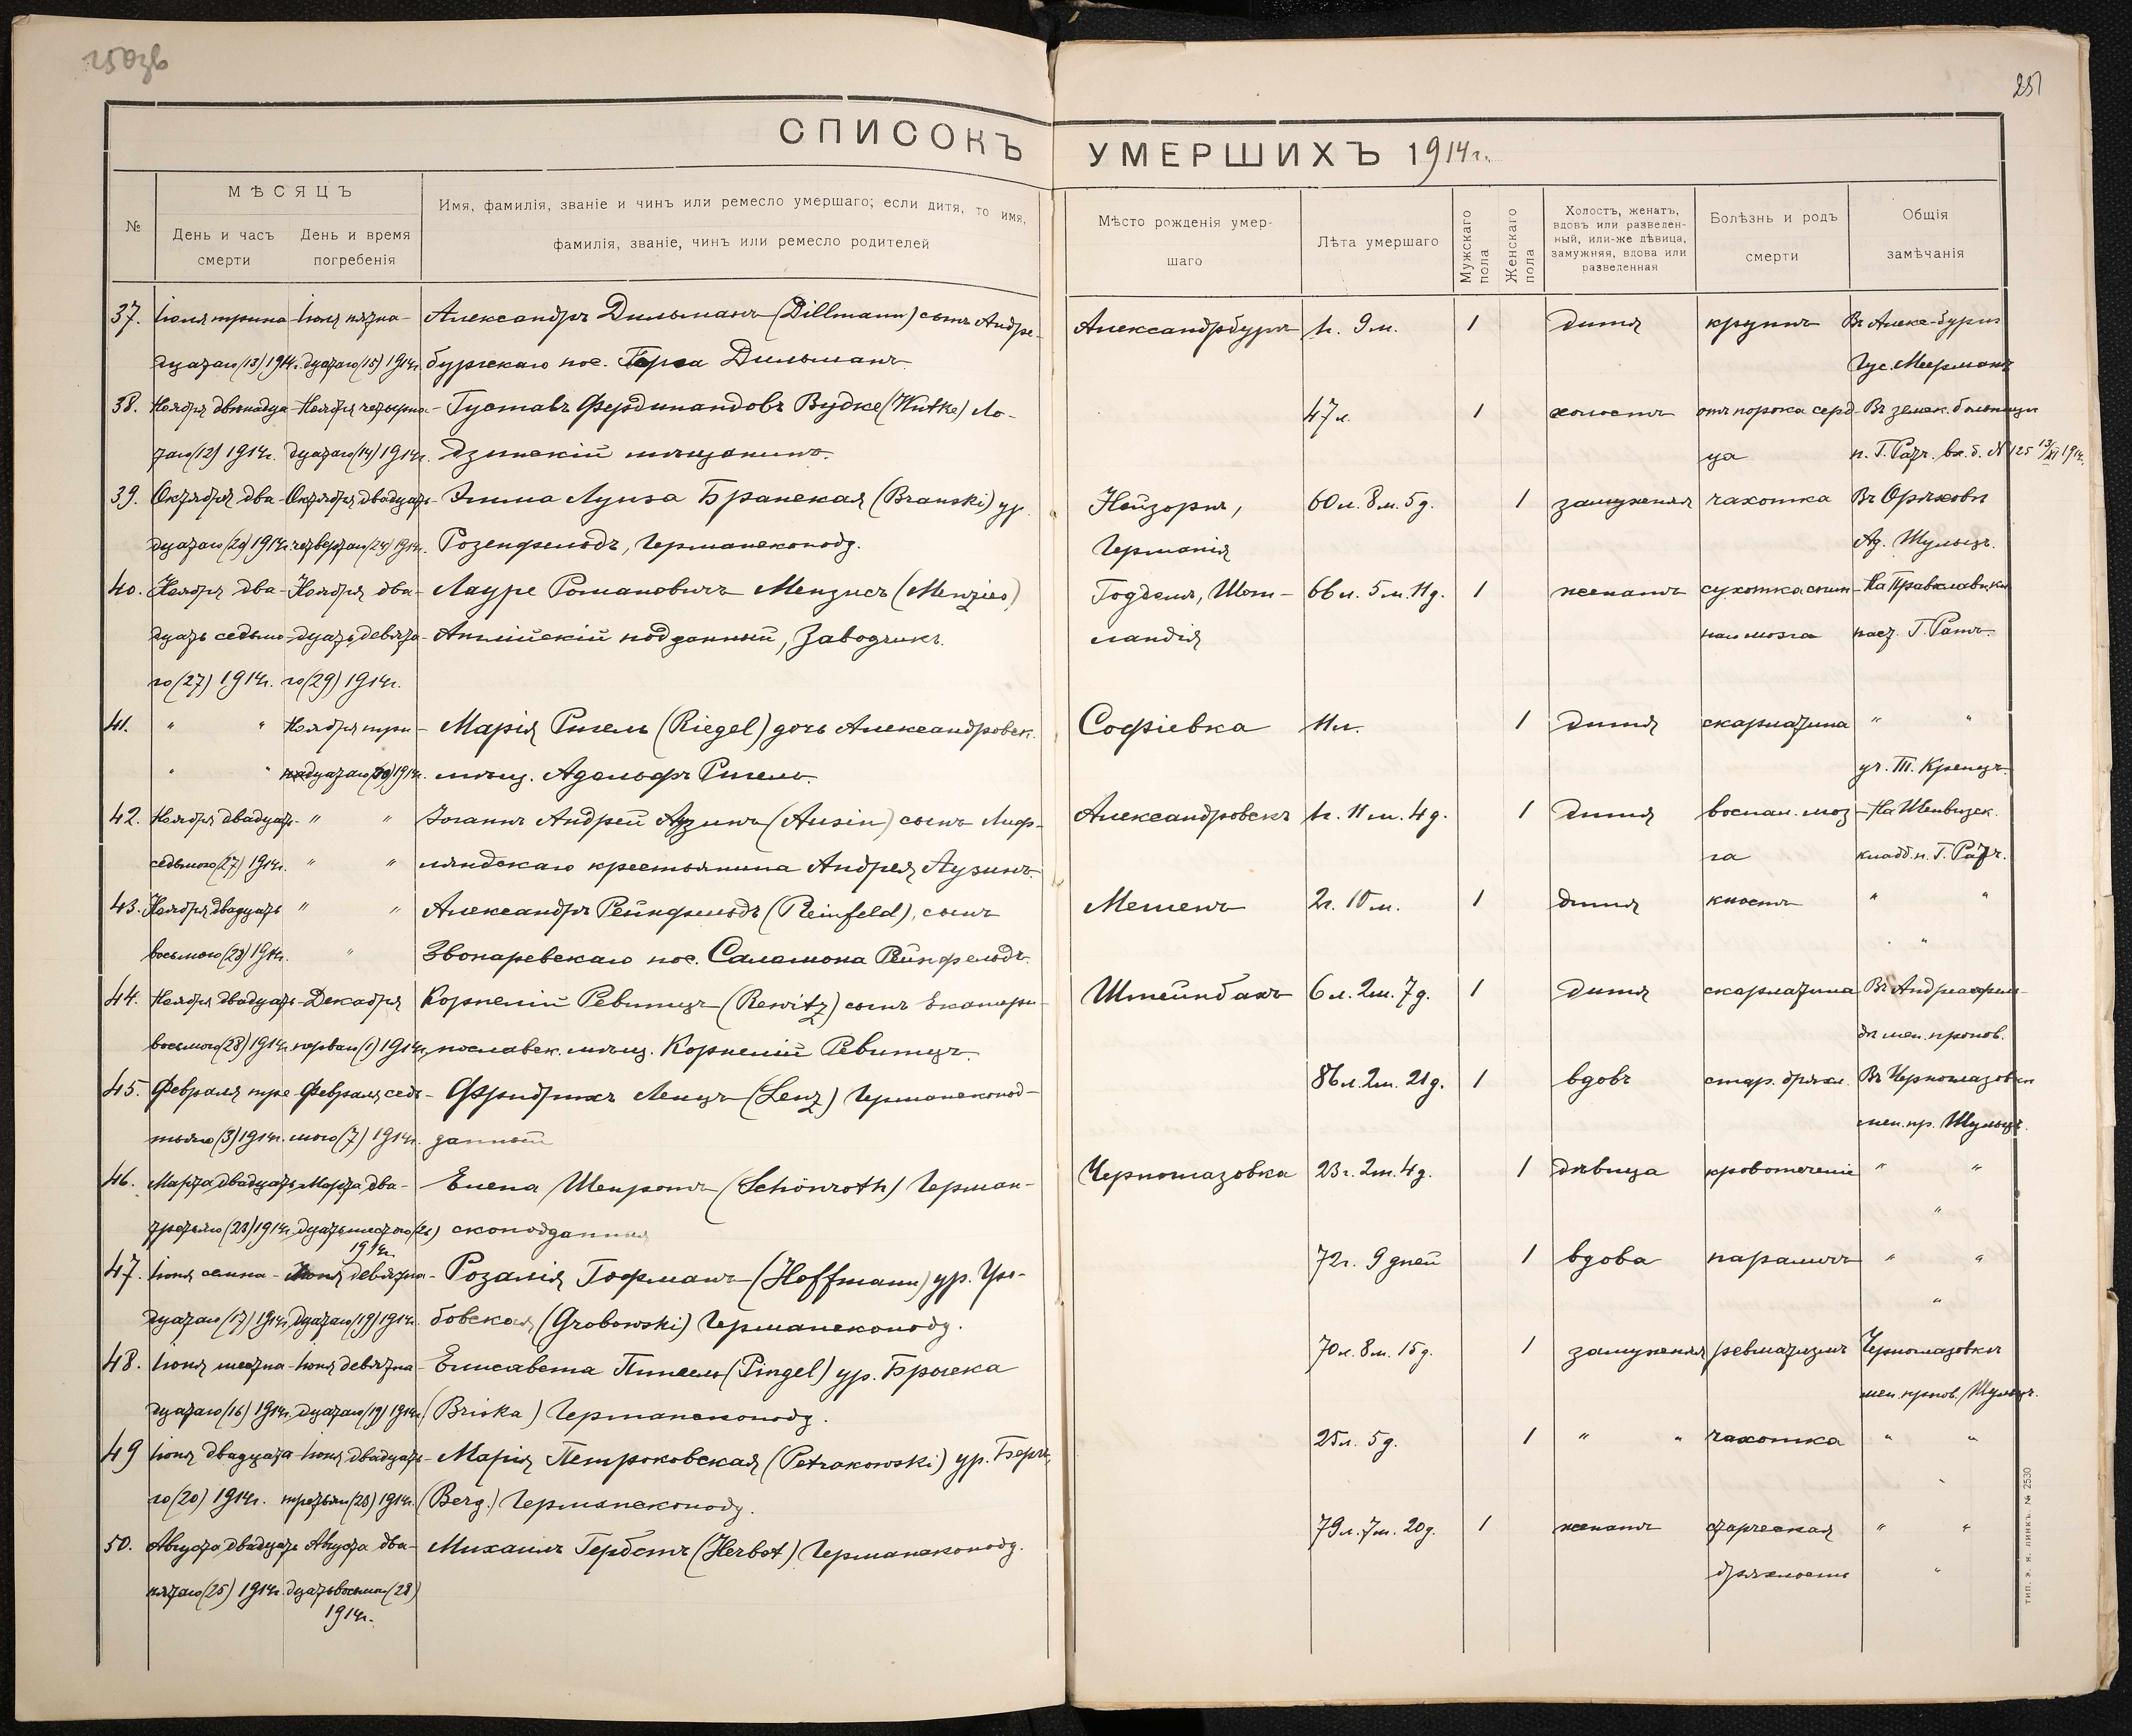 250зв
251
СПИСОКЪ УМЕРШИХЪ 1914г.
№
МѢСЯЦЪ
День и часъ смерти
День и время погребенія
Имя, фамилія, званіе и чинъ или ремесло умершаго; если дитя, то имя,
фамилія, званіе, чинъ или ремесло родителей
Мѣсто рожденія умер-
шаго
Лѣта умершаго
Мужскаго пола
Женскаго пола
Холостъ, женатъ,
вдовъ или разведен-
ный, или-же дѣвица,
замужняя, вдова или
разведенная
Болѣзнь и родъ
смерти
Общія
замѣчанія
37. Іюля трина- Іюля пятна- Александръ Дильманъ (Dillmann) сынъ Андре- Александрбургъ 1г. 9м. 1 дитя крупъ Въ Алекс-бургѣ
дцатаго (13) 1914г. дцатаго (15) 1914г. бургскаго пос. Дильманъ. Гус. Меерманъ
38. Ноября двѣнадца- Ноября четырна- Густавъ Фердинандовъ Вудке (Wutke) Ло- 47л. 1 холостъ отъ порока серд- Въ земск. больницѣ
таго (12) 1914г. дцатаго (14) 1914г. дзинскій мѣщанинъ. ца п. Г. Ратъ. вх. б. № 125 13/XI 1914г.
39. Октября два- Октября двадцать- Эмма Луиза Бранская (Branski) ур. Нейгоръ, 60л. 8м. 5д. 1 замужняя чахотка Въ Орѣховѣ
дцатаго (20) 1914г. четвертаго (24) 1914г. Розенфельдъ, Германскопод. Германія Ад. Шульцъ.
40. Ноября два- Ноября два- Лауре Романовичъ Мензисъ (Menzies) Шот- 66л. 5м. 11д. 1 женатъ сухотка спин- На Православн. кл.
дцать седьмо- дцать девята- Англійскій подданный, Заводчикъ. ландія наго мозга паст. Г. Ратъ.
го (27) 1914г. го (29) 1914г.
41. " " Ноября три- Марія Ригель (Riegel) дочь Александровск. Софіевка 11л. 1 дитя скарлатина " "
" " дцатаго (30) 1914г. мѣщ. Адольфъ Ригель. уч. Т. Кренцъ.
42. Ноября двадцать- " " Іоганъ Андрей Аузинъ (Ausin) сынъ Лиф- Александровскъ 1г. 11м. 4д. 1 дитя воспал. моз- На Шенвизск.
седьмого (27) 1914г. " " ляндскаго крестьянина Андрея Аузинъ. га кладб. п. Г. Ратъ.
43. Ноября двадцать " " Александръ Рейнфельдъ (Reinfeld), сынъ 2г. 10м. 1 дитя " "
восьмого (28) 1914г. " Звонаревскаго пос. Саломона Рейнфельдъ. "
44. Ноября двадцать- Декабря Корнелій Ревитцъ (Rewitz) сынъ Екатери- Штейнбахъ 6л. 2м. 7д. 1 дитя скарлатина Въ Андреасфель-
восьмого (28) 1914г. перваго (1) 1914г. нославск. мѣщ. Корнелій Ревитцъ. дѣ мен. пропов.
45. Февраля тре- Февраля седь- Фридрихъ Ленцъ (Lenz) Германскопод- 86л. 2м. 21д. 1 вдовъ стар. дряхл. Въ Черноглазовкѣ
тьяго (3) 1914г. мого (7) 1914г. данный мен. пр. Шульцъ.
46. Марта двадцать- Марта два- Елена Шенротъ (Schönroth) Герман- Черноглазовка 23г. 2м. 4д. 1 дѣвица кровотеченіе " "
третьяго (23) 1914г. дцатьшестого (26) скоподданная "
1914г.
47. Іюня семна- Іюня девятна- Розалія Гофманъ (Hoffmann) ур. Гро- 72г. 9 дней 1 вдова параличъ " "
дцатаго (17) 1914г. дцатаго (19) 1914г. бовская (Grobowski) Германскопод. "
48. Іюня шестна- Іюня девятна- Елисавета Пингель (Pingel) ур. Брыска 70л. 8м. 15д. 1 замужняя ревматизмъ Черноглазовкѣ
дцатаго (16) 1914г. дцатаго (19) 1914г. (Briska) Германскопод. мен. пропов. Шульцъ.
49 Іюня двадцата- Іюня двадцать- Марія Петроковская (Petrakowski) ур. Бергъ 25л. 5д. 1 " " чахотка " "
го (20) 1914г. третьяго (23) 1914г. (Berg.) Германскопод. "
50. Августа двадцать Августа два- Михаилъ Гербстъ (Herbst) Германскопод. 79л. 7м. 20д. 1 женатъ старческая " "
пятаго (25) 1914г. дцатьвосьмого (28) дряхлость "
1914г.
тип. э. я. линкъ. № 2530